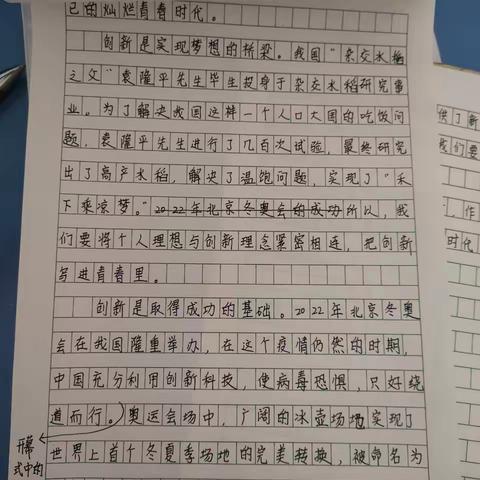 己的灿烂青春时代。
创新是实现梦想的桥梁。我国“杂交水稻
之父”袁隆平先生毕生投身于杂交水稻研究事
业。为了解决我国这样一个人口大国的吃饭问
题，袁隆平先生进行了几百次试验，最终研究
出了高产水稻，解决了温饱问题，实现了“禾
下乘凉梦。”2022年北京冬奥会的成功所以，我
们要将个人理想与创新理念紧密相连，把创新
写进青春里。
创新是取得成功的基础。2022年北京冬奥
会在我国隆重举办，在这个疫情仍然的时期，
中国充分利用创新科技，使病毒恐惧，只好绕
道而行。奥运会场中，广阔的冰壶场场地实现了
世界上首个冬夏季场地的完美转换，被命名为
开幕
式中的
供了新
我们要
，作
时代